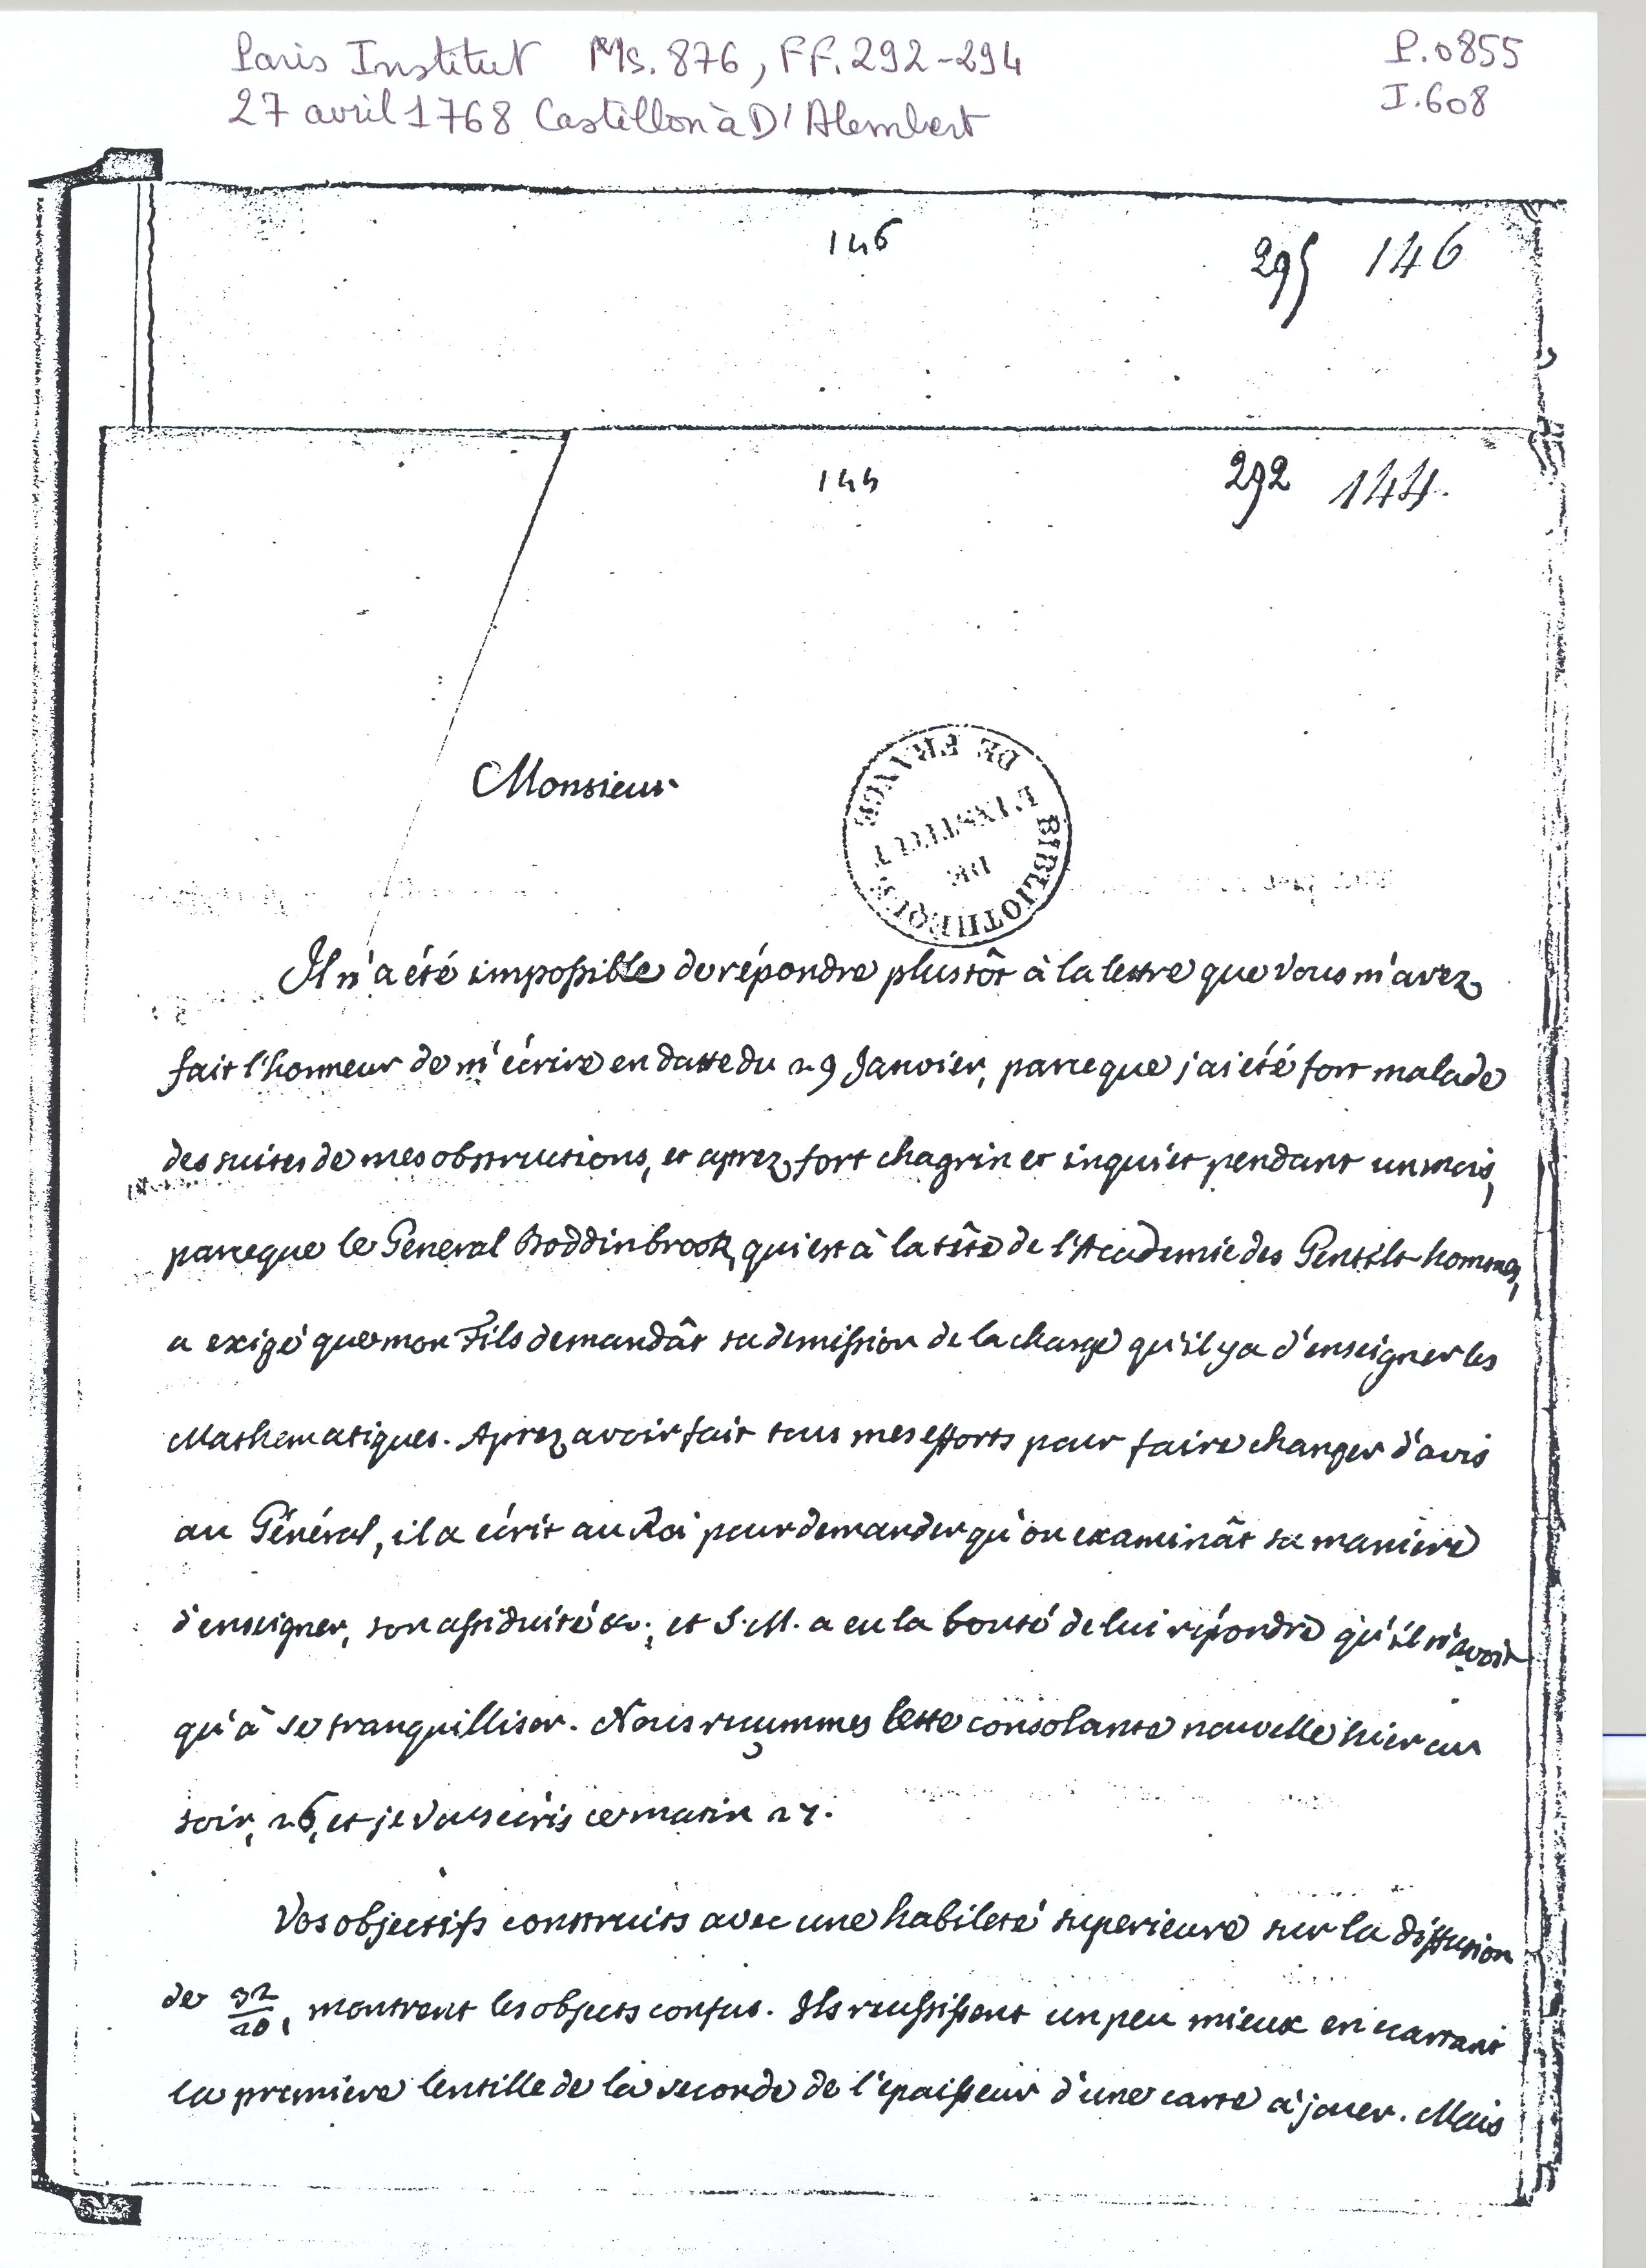 Paris Institut Ms. 876, FF. 292-294
P.0855
27 avril 1768 Castillon à D'Alembert
I.608
146 295 146
144 292 144.
Monsieur
BIBLIOTHEQUE DE L'INSTITUT DE FRANCE
Il m'a été impossible de répondre plustôt à la lettre que vous m'avez
fait l'honneur de m'écrire en datte du 29 Janvier, parceque j'ai été fort malade
des suites de mes obstructions, et aprez fort chagrin et inquiet pendant un mois,
parceque le General Boddinbrook, qui est à la tête de l'Academie des Gentils-hommes,
a exigé que mon Fils demandât sa demission de la charge qu'il y a d'enseigner les
Mathematiques. Aprez avoir fait tous mes efforts pour faire changer d'avis
au Général, il a écrit au Roi pour demander qu'on examinât sa maniere
d'enseigner, son assiduité &c.; et S.M. a eu la bonté de lui répondre qu'il n'avoit
qu'à se tranquilliser. Nous reçummes cette consolante nouvelle hier au
soir, 26, et je vous écris ce matin 27.
Vos objectifs construits avec une habileté superieure sur la diffusion
de 32/20, montrent les objects confus. Ils reussissent un peu mieux en ecartant
la premiere lentille de la seconde de l'epaisseur d'une carte à jouer. Mais